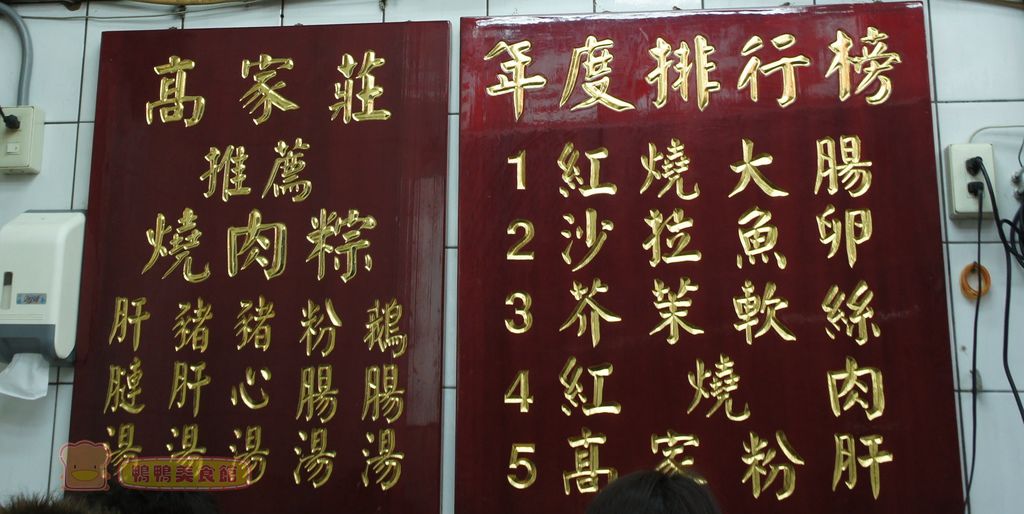 髙家莊
推薦
燒肉粽
鵝腸湯
粉腸湯
豬心湯
豬肝湯
肝腱湯
年度排行榜
1 紅燒大腸
2 沙拉魚卵
3 芥茉軟絲
4 紅燒肉
5 髙家粉肝
鴨鴨美食館